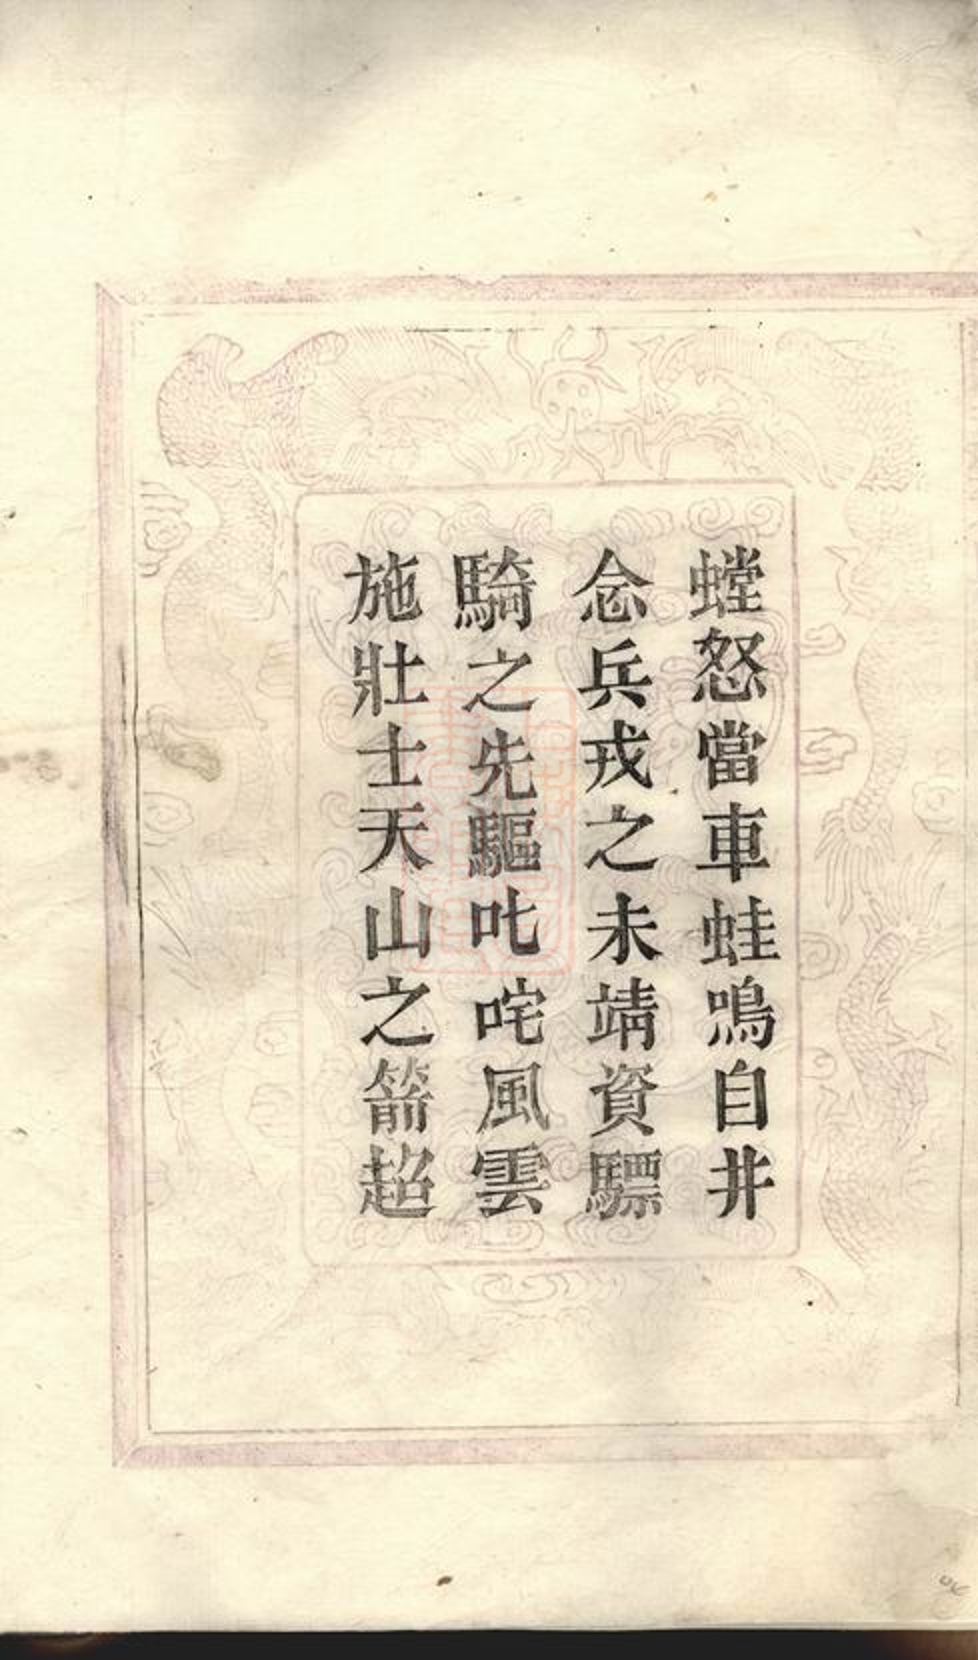 螳怒當車蛙鳴自井
念兵戎之未靖資驃
騎之先驅叱咤風雲
施壯士天山之箭超